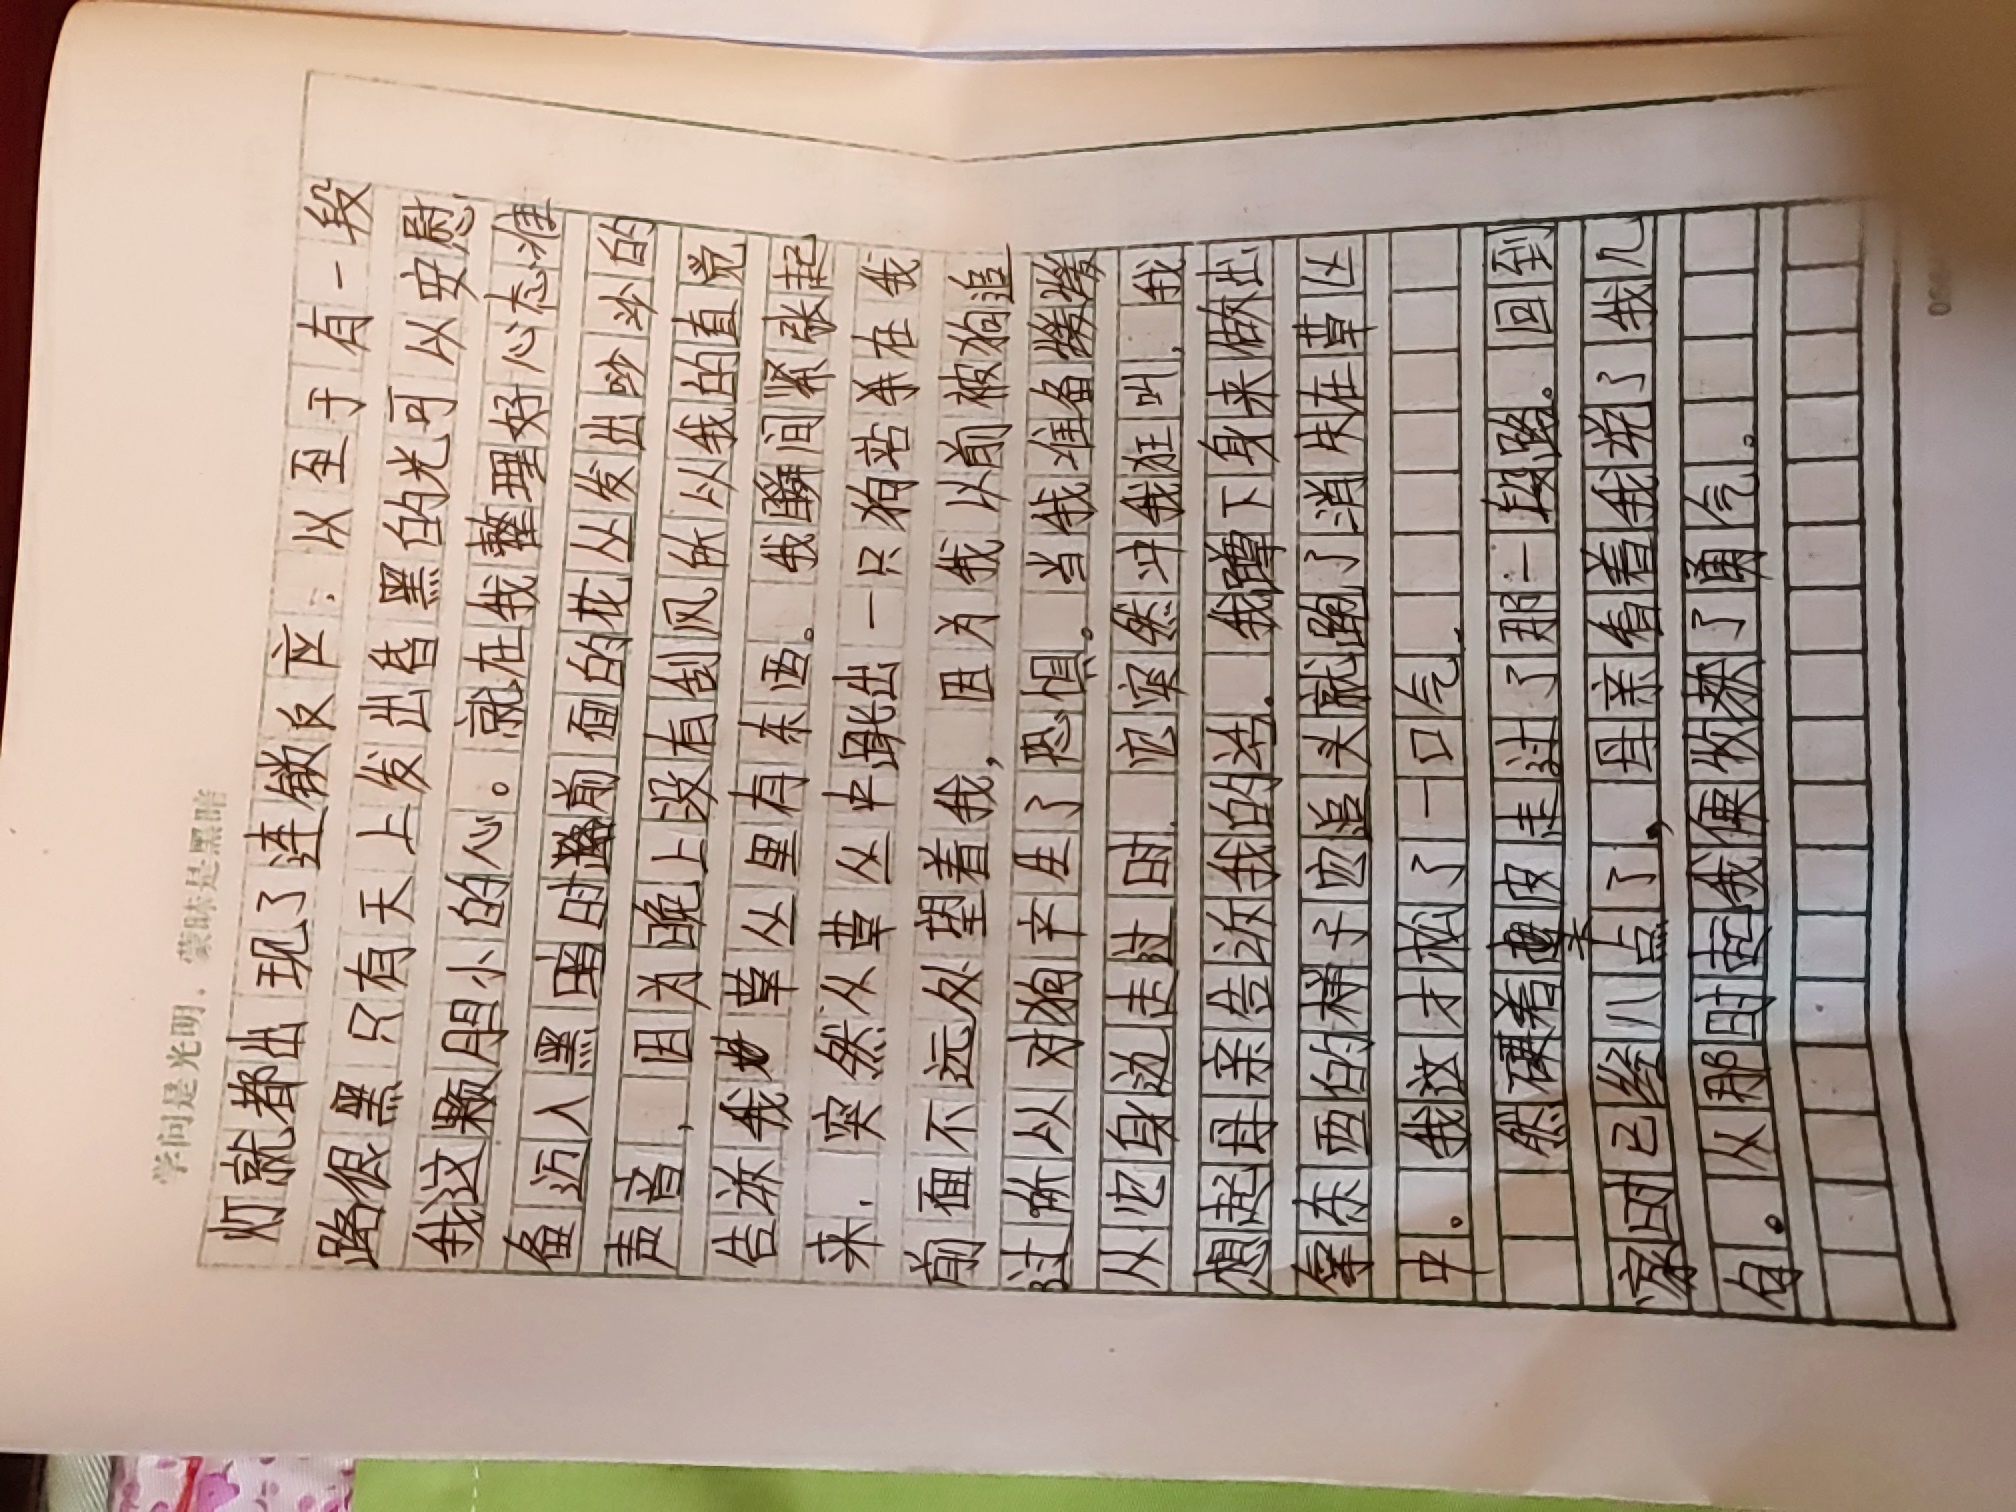 学问是光明，蒙昧是黑暗
灯就都出现了连锁反应：以至于有一段
路很黑只有天上发出昏黑的光可以安慰
我这颗胆小的心。就在我整理好心态准
备迈入黑暗时路前面的花丛发出吵沙的
声音，因为晚上没有刮风所以我的直觉
告诉我草丛里有东西。我瞬间紧张起
来，突然从草丛中蹿出一只狗站在我
前面不远处望着我，因为我以前被狗追
过所以对狗产生了恐惧。当我准备缓缓
从它身边走过时，它突然冲我狂叫，我
想起母亲告诉我的话，我蹲下身来做出
拿东西的样子它追头就跑了消失在草丛
中。我这才松了一口气，
然硬着头皮走过了那一段路。回到
家时已经八点了，母亲看着我说了我几
句。从那时起我便收获了勇气。